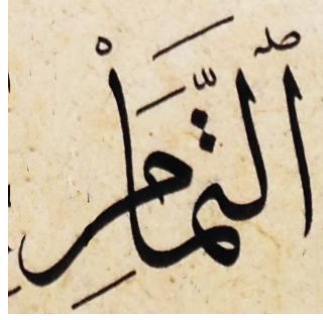 ٱلتَّمَاْمِ